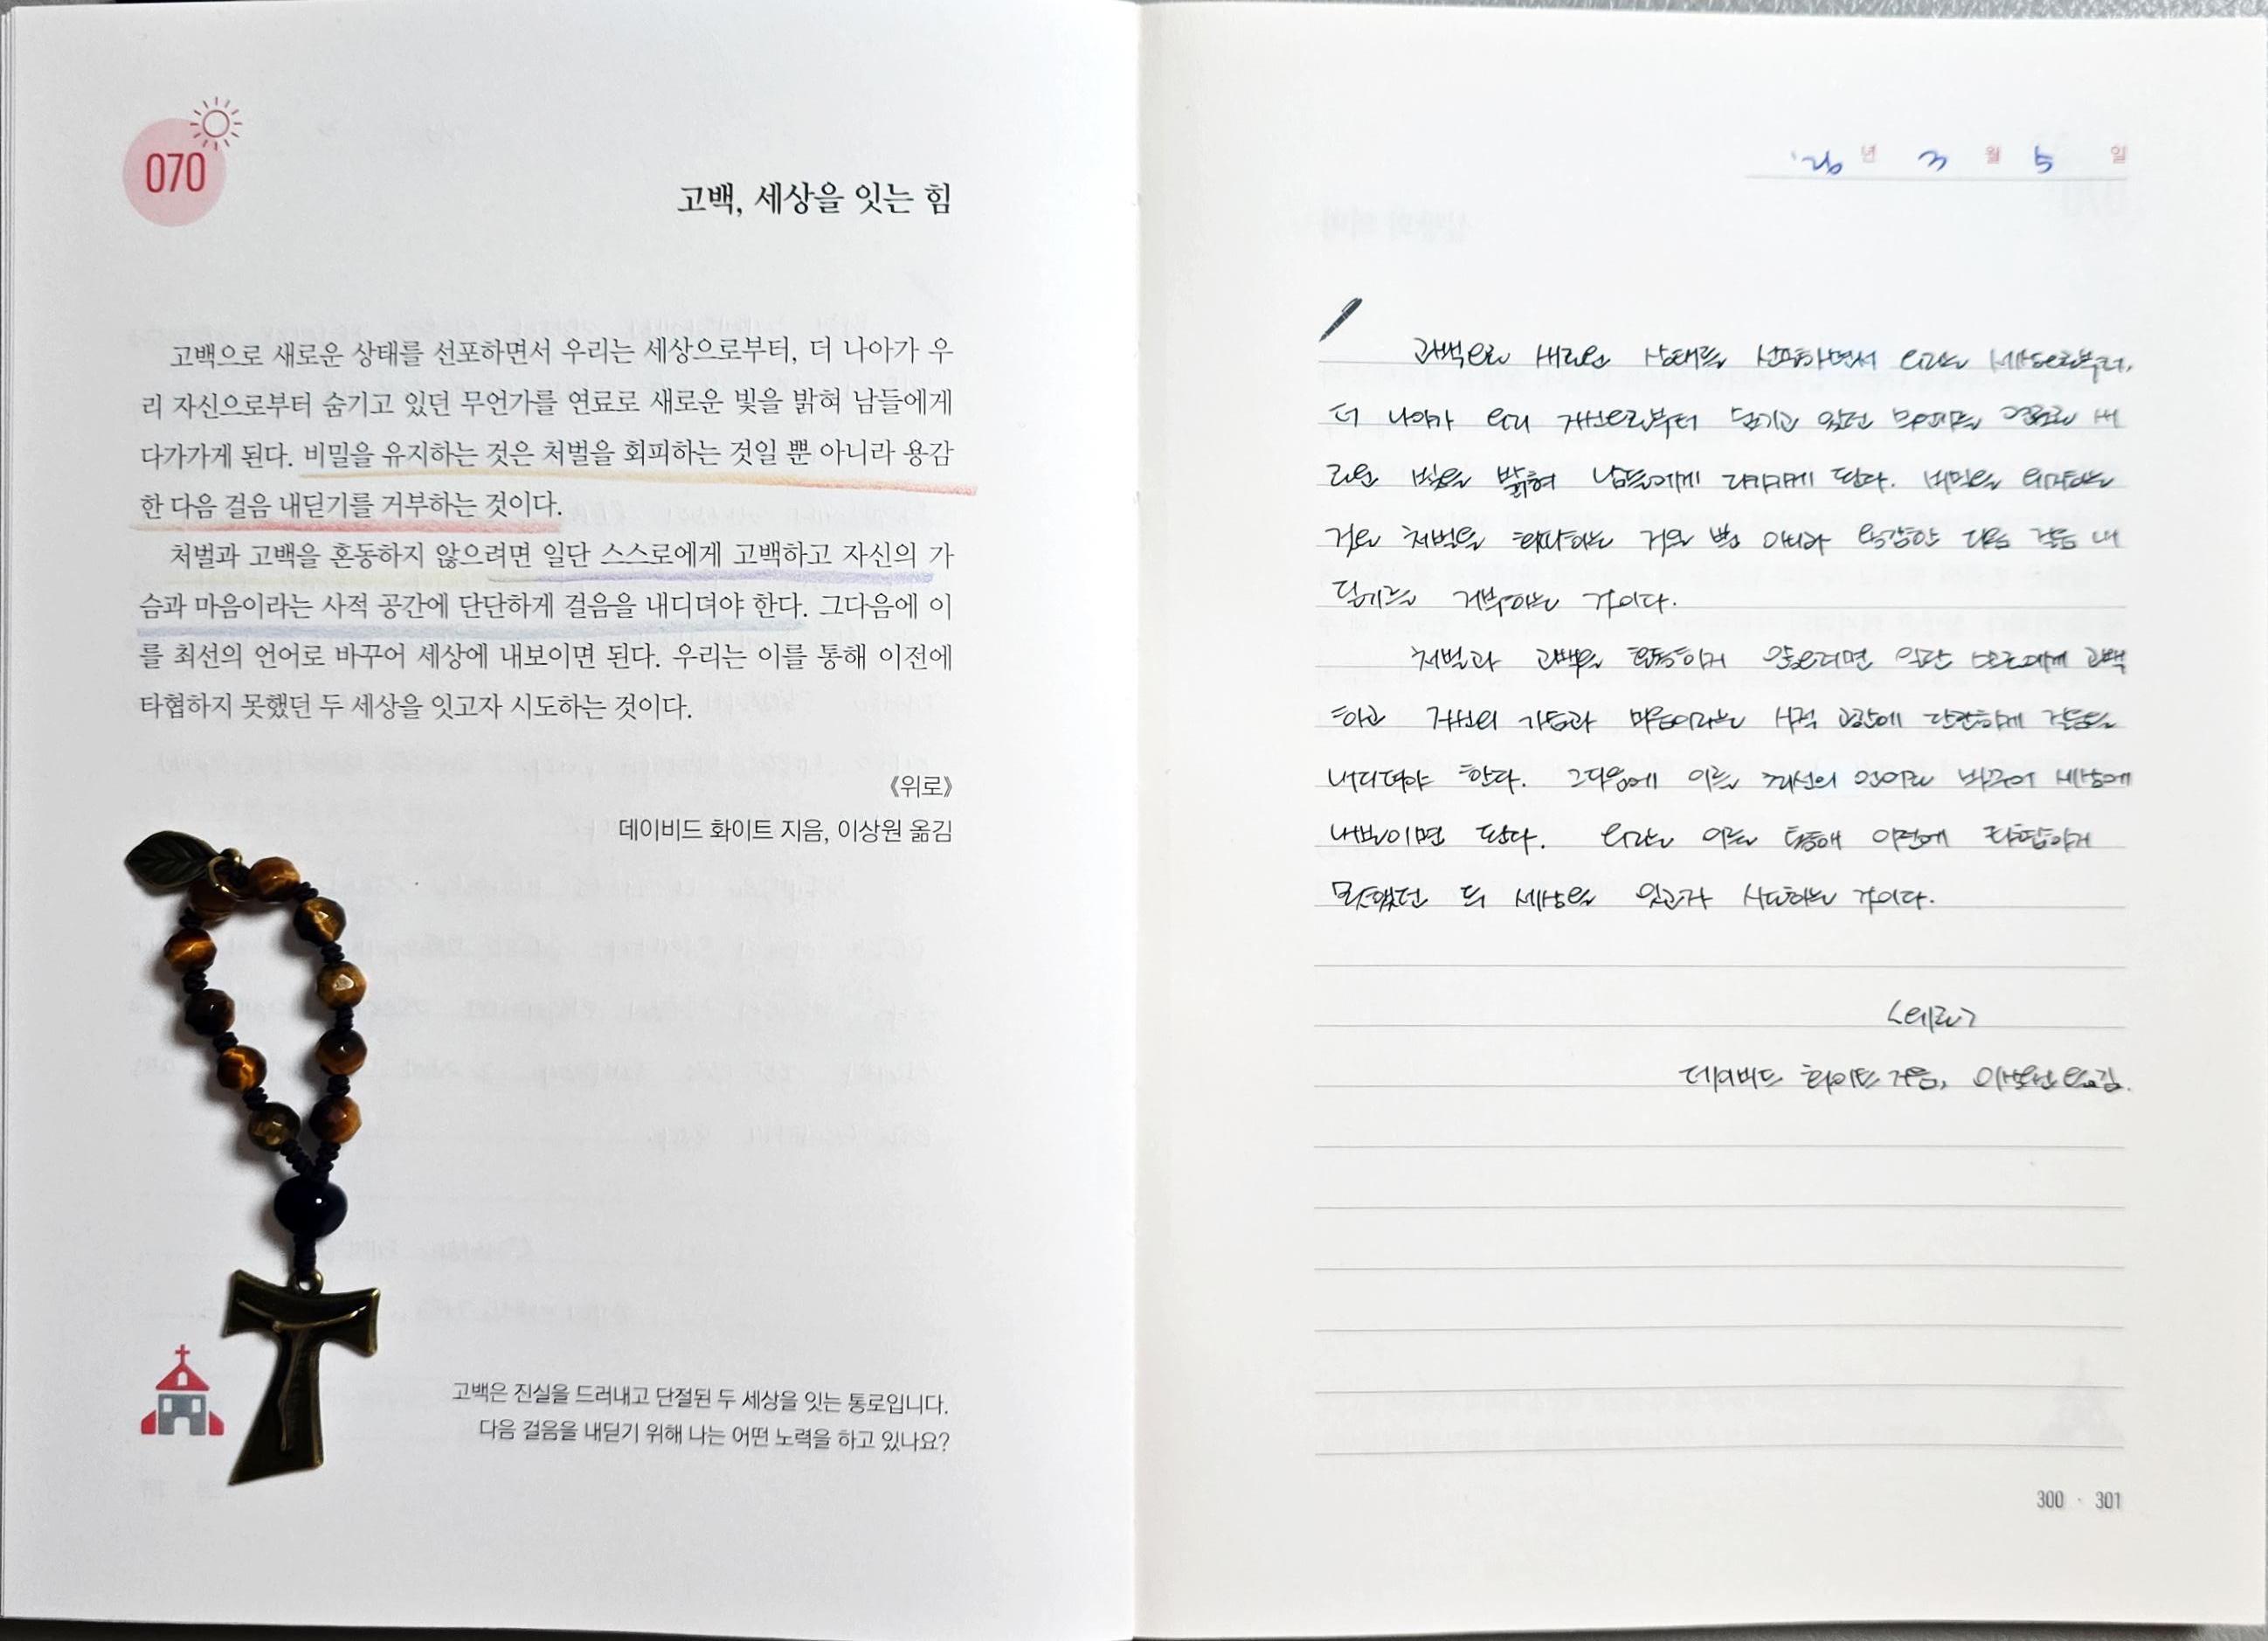 070
고백, 세상을 잇는 힘
고백으로 새로운 상태를 선포하면서 우리는 세상으로부터, 더 나아가 우
리 자신으로부터 숨기고 있던 무언가를 연료로 새로운 빛을 밝혀 남들에게
다가가게 된다. 비밀을 유지하는 것은 처벌을 회피하는 것일 뿐 아니라 용감
한 다음 걸음 내딛기를 거부하는 것이다.
처벌과 고백을 혼동하지 않으려면 일단 스스로에게 고백하고 자신의 가
슴과 마음이라는 사적 공간에 단단하게 걸음을 내디뎌야 한다. 그다음에 이
를 최선의 언어로 바꾸어 세상에 내보이면 된다. 우리는 이를 통해 이전에
타협하지 못했던 두 세상을 잇고자 시도하는 것이다.
《위로》
데이비드 화이트 지음, 이상원 옮김
고백은 진실을 드러내고 단절된 두 세상을 잇는 통로입니다.
다음 걸음을 내딛기 위해 나는 어떤 노력을 하고 있나요?
'26년 3월 5일
고백으로 새로운 상태를 선포하면서 우리는 세상으로부터,
더 나아가 우리 자신으로부터 숨기고 있던 무언가를 연료로 새
로운 빛을 밝혀 남들에게 다가가게 된다. 비밀을 유지하는
것은 처벌을 회피하는 것일 뿐 아니라 용감한 다음 걸음 내
딛기를 거부하는 것이다.
처벌과 고백을 혼동하지 않으려면 일단 스스로에게 고백
하고 자신의 가슴과 마음이라는 사적 공간에 단단하게 걸음을
내디뎌야 한다. 그다음에 이를 최선의 언어로 바꾸어 세상에
내보이면 된다. 우리는 이를 통해 이전에 타협하지
못했던 두 세상을 잇고자 시도하는 것이다.
<위로>
데이비드 화이트 지음, 이상원 옮김.
300 · 301